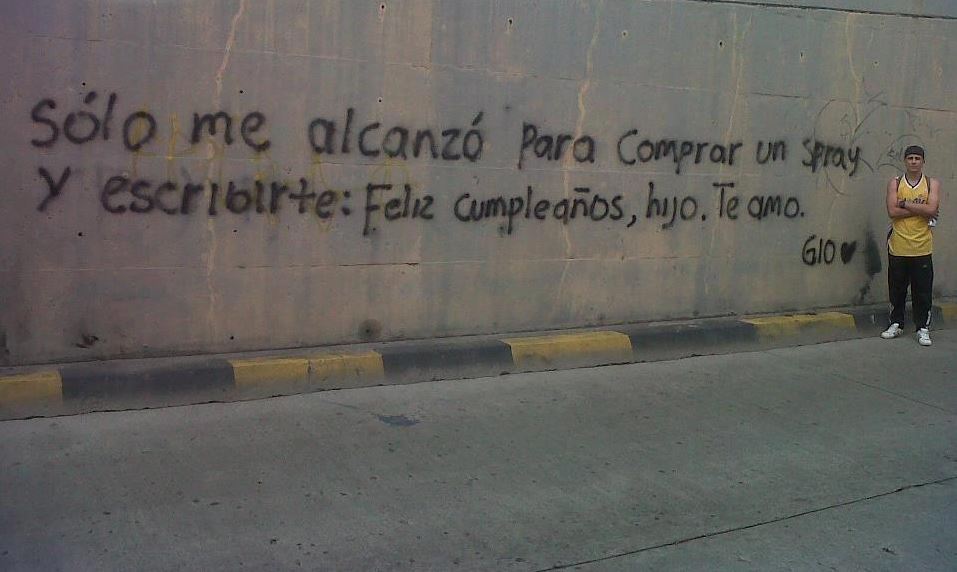 Sólo me alcanzó para comprar un spray
y escribirte: Feliz cumpleaños, hijo. Te amo.
GIO ♥